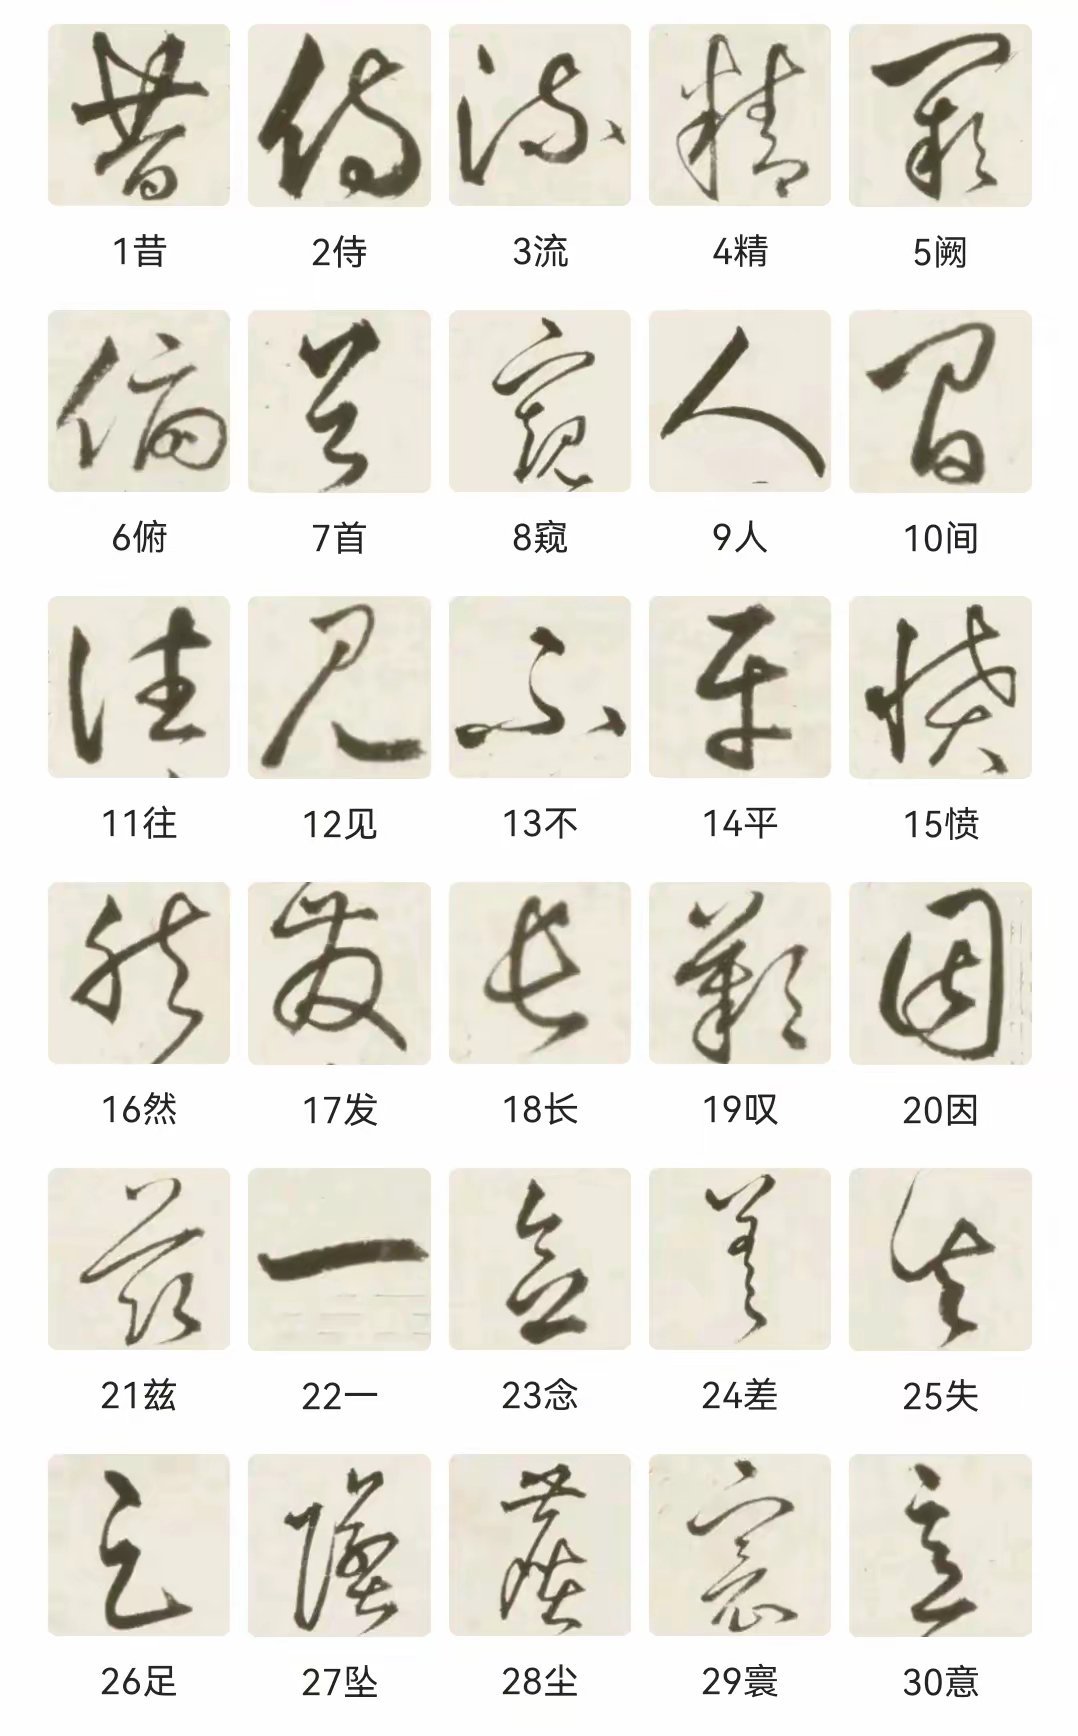 1昔 2侍 3流 4精 5阙
6俯 7首 8窥 9人 10间
11往 12见 13不 14平 15愤
16然 17发 18长 19叹 20因
21兹 22一 23念 24差 25失
26足 27坠 28尘 29寰 30意